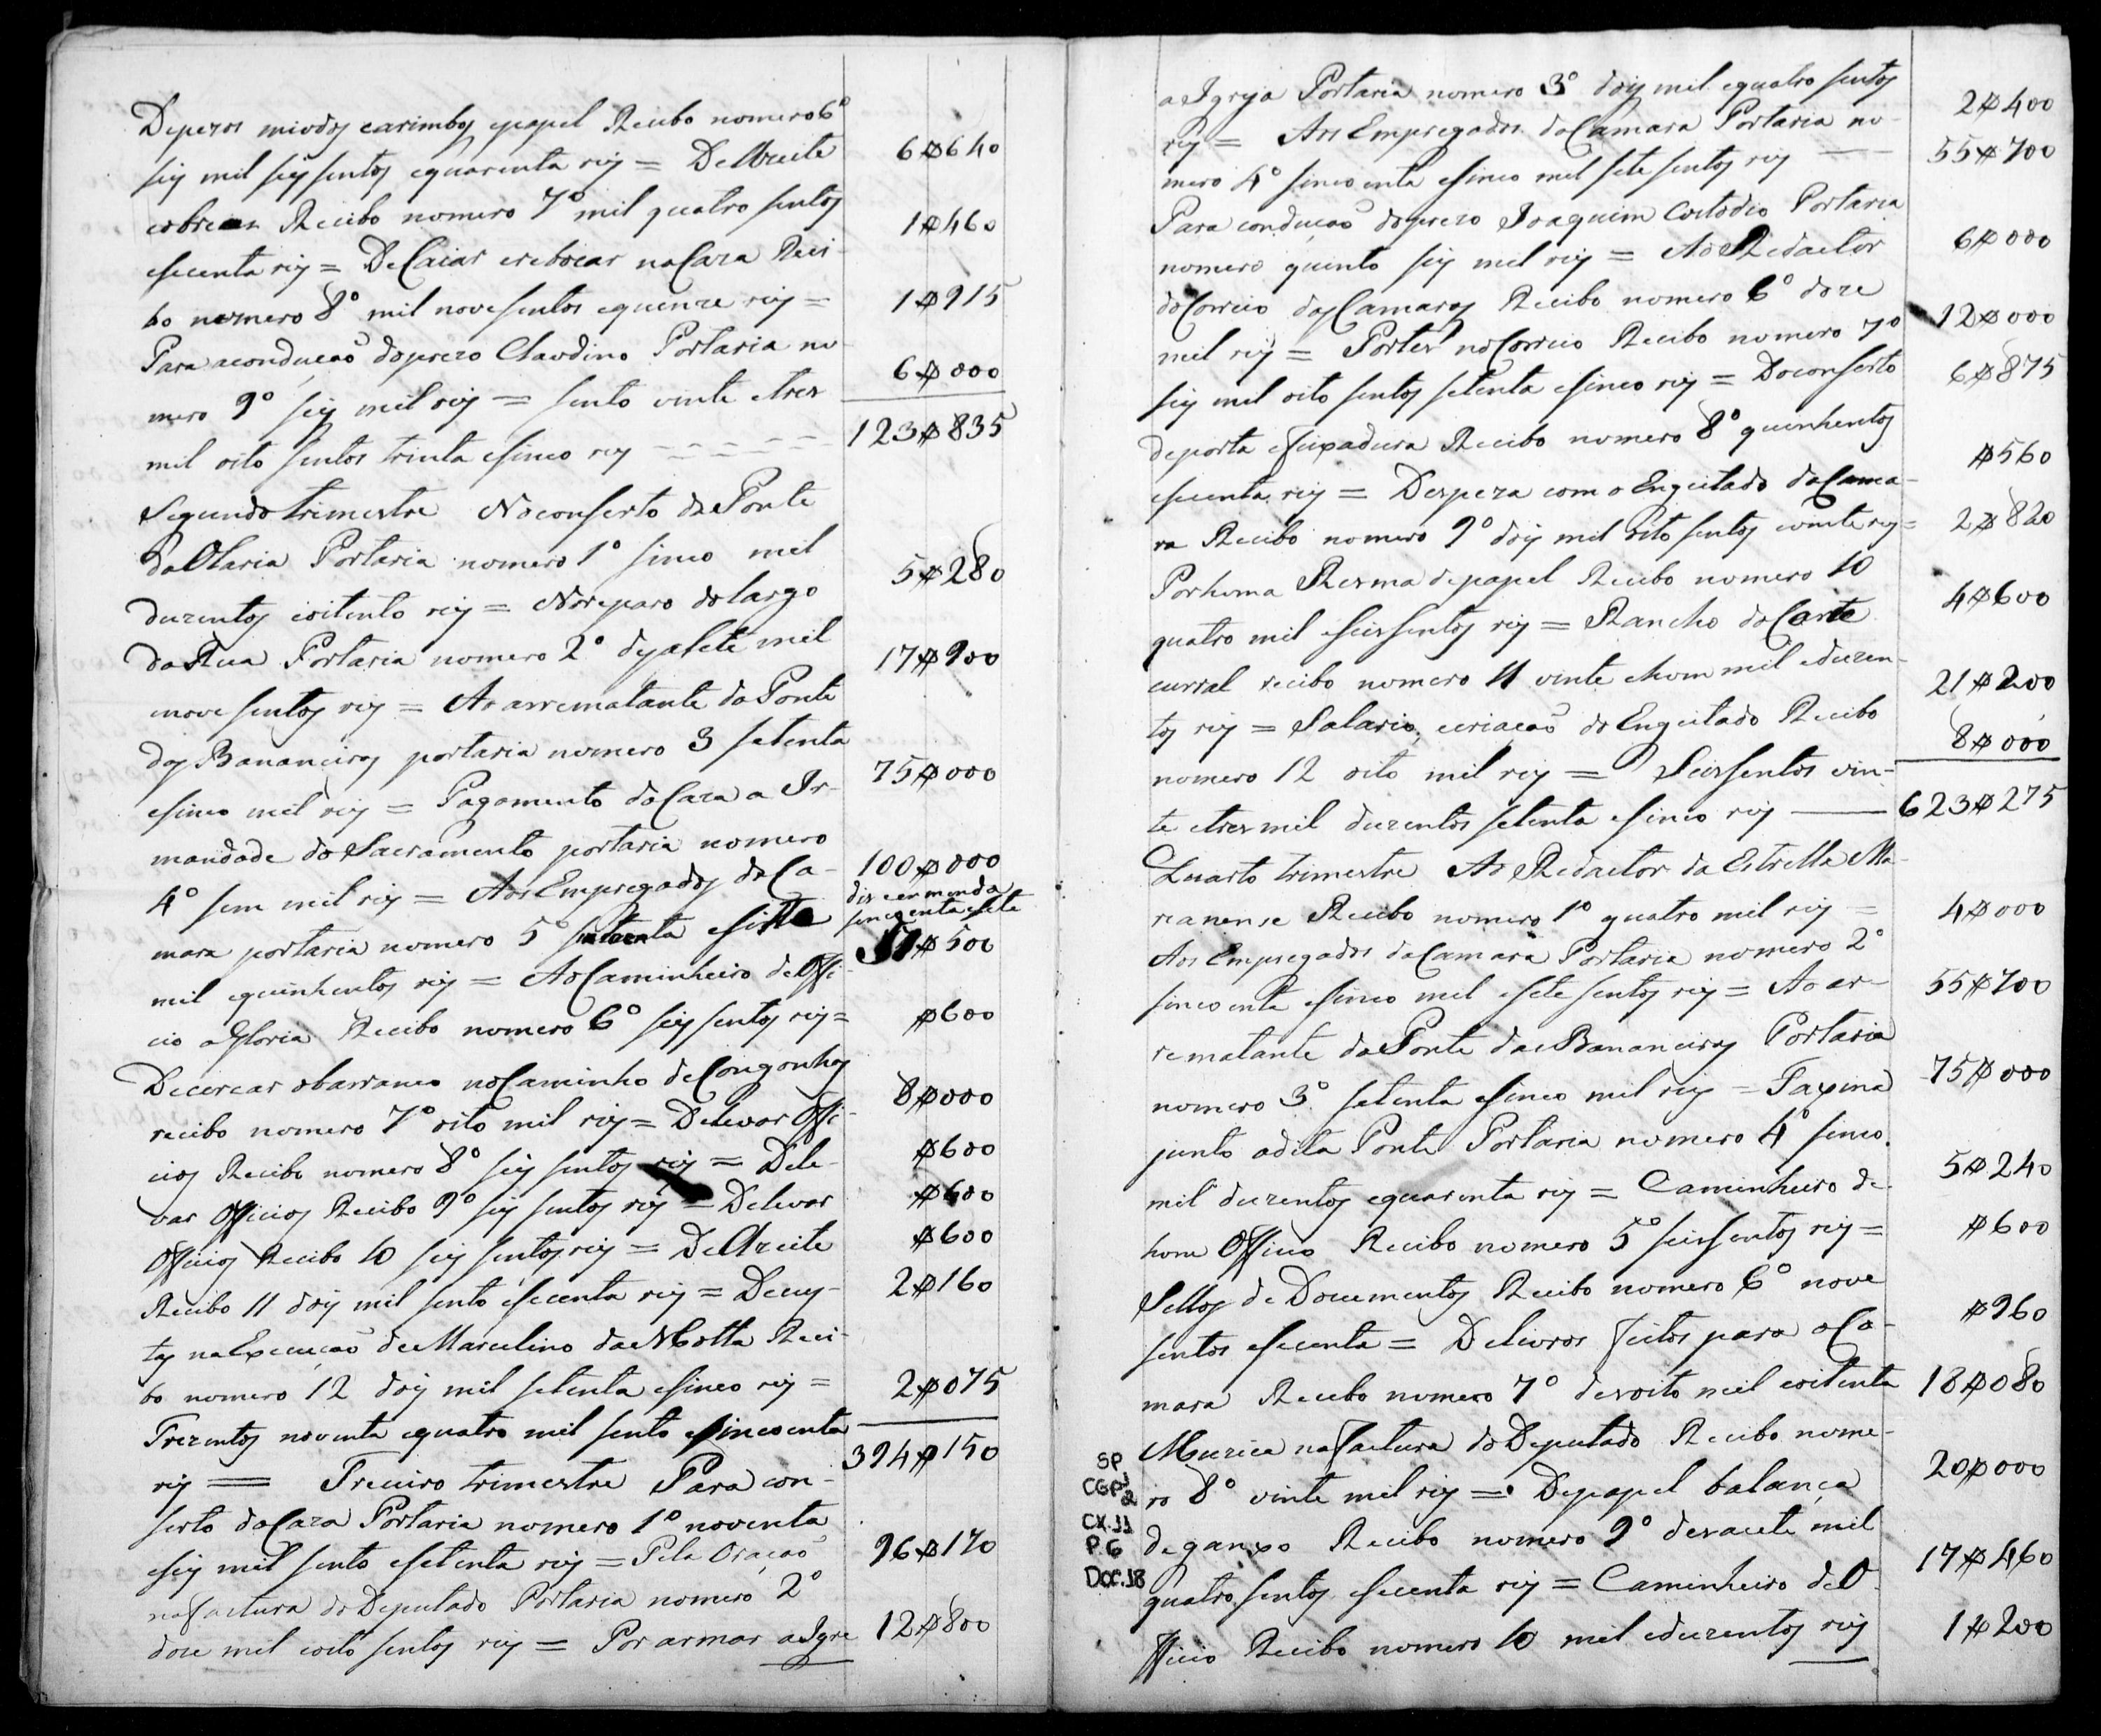 Depezos miodos carimbos epapel Recibo nomero 6º
seis mil seissentos equarenta reis = De Azeite 6$640
Recibo nomero 7º mil quatro sentos
esecenta reis = De Caiar erebocar na Caza Reci- 1$460
bo nomero 8º mil novesentos equinze reis = 1$915
Para aconducaõ doprezo Claodino Portaria no-
mero 9º seis mil reis = sento vinte etres 6$000
mil oito sentos trinta esinco reis 123$835
Segundo trimestre No conserto da Ponte
da Olaria Portaria nomero 1º sinco mil
duzentos eoitento reis = No reparo do largo 5$280
da Rua Portaria nomero 2º dezasete mil
enove sentos reis = Ao arrematante da Ponte 17$900
das Bananeiras portaria nomero 3 setenta
esinco mil reis = Pagamento da Caza a Ir- 75$000
mandade do Sacramento portaria nomero
4º sem mil reis = Aos Empregados da Ca- 100$000
mara portaria nomero 5 esete
dis eemenda
sincoenta esete
mil equinhentos reis = Ao Caminheiro de Offi- 57$500
cio a Gloria Recibo nomero 6º seis sentos reis = $600
De cercar obarranco no Caminho de Congonhas
recibo nomero 7º oito mil reis = De levar Offi- 8$000
cios Recibo nomero 8º seis sentos reis = De le- $600
var Officios Recibo 9º seis sentos reis = De levar $600
Officios Recibo 10 seis sentos reis = De Azeite $600
Recibo 11 dois mil sento esecenta reis = De cus- 2$160
tas na Execucaõ de Marcelino da Motta Reci-
bo nomero 12 dois mil setenta esinco reis = 2$075
Trezentos noventa equatro mil sento esincoenta
reis = Treceiro trimestre Para con- 394$150
serto da Caza Portaria nomero 1º noventa
eseis mil sento esetenta reis = Pela Oracaõ 96$170
na factura do Deputado Portaria nomero 2º
doze mil eoito sentos reis = Por armar a Igre 12$800
a Igreja Portaria nomero 3º dois mil equatro sentos
reis = Aos Empregados da Camara Portaria no- 2$400
mero 4º sincoenta esinco mil sete sentos reis 55$700
Para conducaõ doprezo Joaquim Costodio Portaria
nomero quinto seis mil reis = Ao Redactor 6$000
do Correio das Camaras Recibo nomero 6º doze
mil reis = Portes no Correio Recibo nomero 7º 12$000
seis mil oito sentos setenta esinco reis = Do conserto 6$875
deporta efexadura Recibo nomero 8º quinhentos
esecenta reis = Despeza com o Engeitado da Cama- $560
ra Recibo nomero 9º dois mil oito sentos evinte reis = 2$820
Por huma Resma de papel Recibo nomero 10
quatro mil eseissentos reis = Rancho do Corte 4$600
curral recibo nomero 11 vinte ehum mil eduzen-
tos reis = Salario, ecriacaõ do Engeitado Recibo 21$200
nomero 12 oito mil reis = Seissentos vin- 8$000
te etres mil duzentos setenta esinco reis 623$275
Quarto trimestre Ao Redactor da Estrella Ma-
rianense Recibo nomero 1º quatro mil reis = 4$000
Aos Empregados da Camara Portaria nomero 2º
sincoenta esinco mil esete sentos reis = Ao ar- 55$700
rematante da Ponte das Bananeiras Portaria
nomero 3º setenta esinco mil reis = Faxina 75$000
junto adita Ponte Portaria nomero 4º sinco
mil duzentos equarenta reis = Caminheiro de 5$240
hum Officio Recibo nomero 5º seissentos reis = $600
Sellos de Documentos Recibo nomero 6º nove
sentos esecenta = De livros feitos para a Ca- $960
mara Recebo nomero 7º dezoito mil eoitenta 18$080
Muzica na factura do Deputado Recibo nome-
ro 8º vinte mil reis = De papel balança 20$000
de ganxo Recibo nomero 9º dezacete mil
quatro sentos esecenta reis = Caminheiro de O- 17$460
fficio Recibo nomero 10 mil eduzentos reis 1$200
SP
CGP¹
2
CX.11
P.6
Doc.18